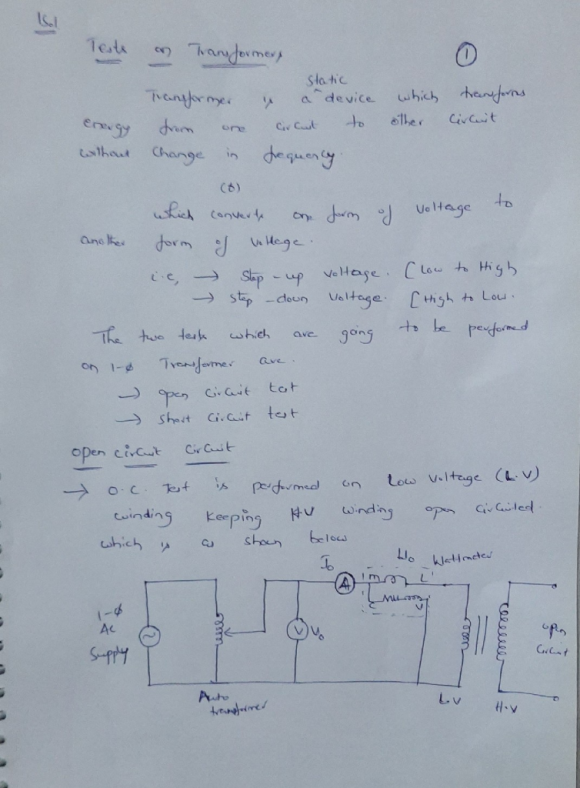 Tests on Transformers
1
static
Transformer is a ^ device which transforms
energy from one circuit to other circuit
without change in frequency.
(or)
which converts one form of voltage to
another form of voltage.
i.e, → Step-up voltage. [Low to High
→ Step-down voltage. [High to Low.
The two tests which are going to be performed
on 1-ϕ Transformer are.
→ open circuit test
→ short circuit test
open circuit circuit
→ O.C. Test is performed on Low voltage (L.V)
winding keeping HV winding open circuited
which is as shown below
I₀
W₀ Wattmeter
A
M L
C V
1-ϕ
AC
Supply
V V₀
open
circuit
Auto
transformer
L.V
H.V